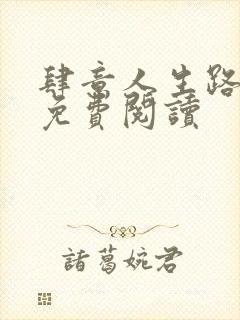 肆意人生路
免費閱讀
諸葛婉君